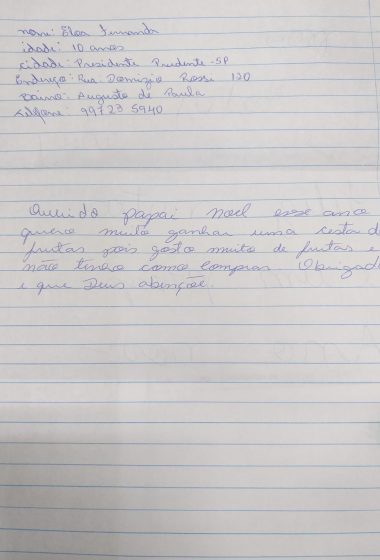 nome: Eloa Fernanda
idade: 10 anos
cidade: Presidente Prudente - SP
Endereço: Rua: Domizio Rossi 120
Bairro: Augusto de Paula
telefone: 99723 5940
Querido papai noel esse ano
quero muito ganhar uma cesta de
frutas pois gosto muito de frutas e
não tenho como comprar Obrigado
e que Deus abençõe.